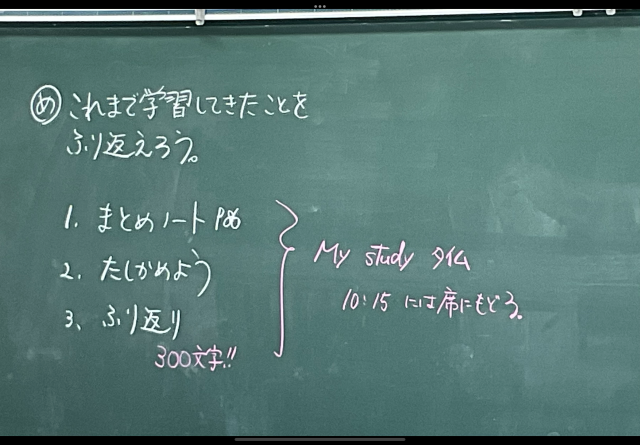 め これまで学習してきたことを
ふり返えろう。
1. まとめノート P86
2. たしかめよう
3、ふり返り
300文字!!
My study タイム
10:15 には席にもどる。